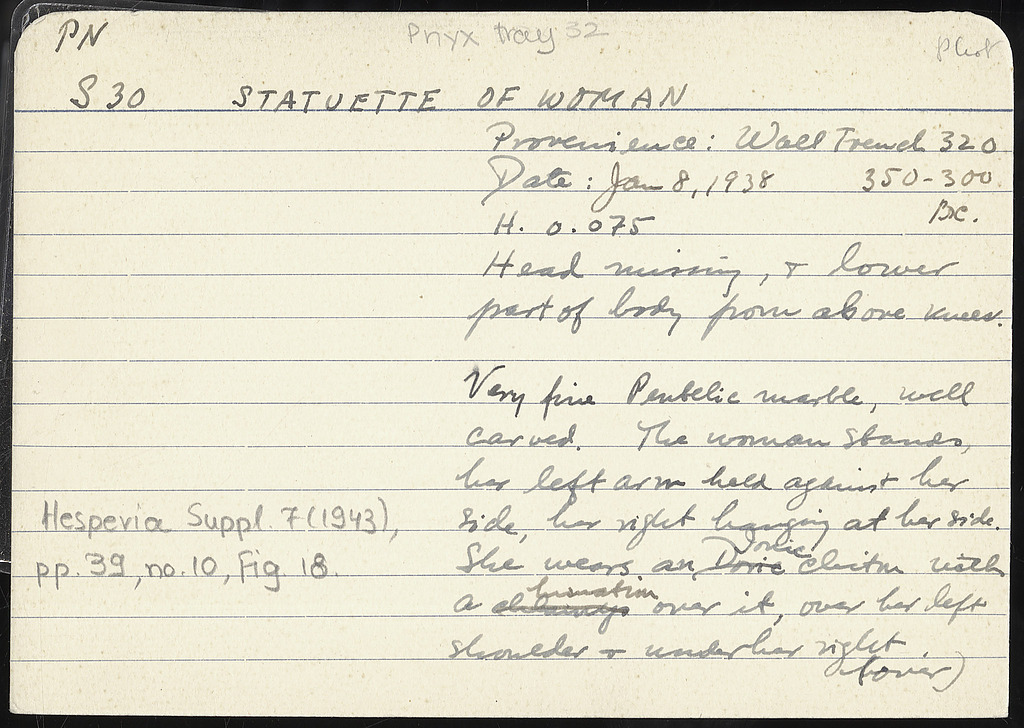 PN
Pnyx tray 32
Phot.
S 30 STATUETTE OF WOMAN
Provenience: Wall Trench 320
Date: Jan 8, 1938 350-300
B.C.
H. 0.075
Head missing, + lower
part of body from above knees.
Very fine Pentelic marble, well
carved. The woman stands,
her left arm held against her
side, her right hanging at her side.
Ionic
She wears an Doric chiton with
himation
a chlamys over it, over her left
shoulder + under her right
(over)
Hesperia Suppl. 7 (1943),
pp. 39, no. 10, Fig 18.